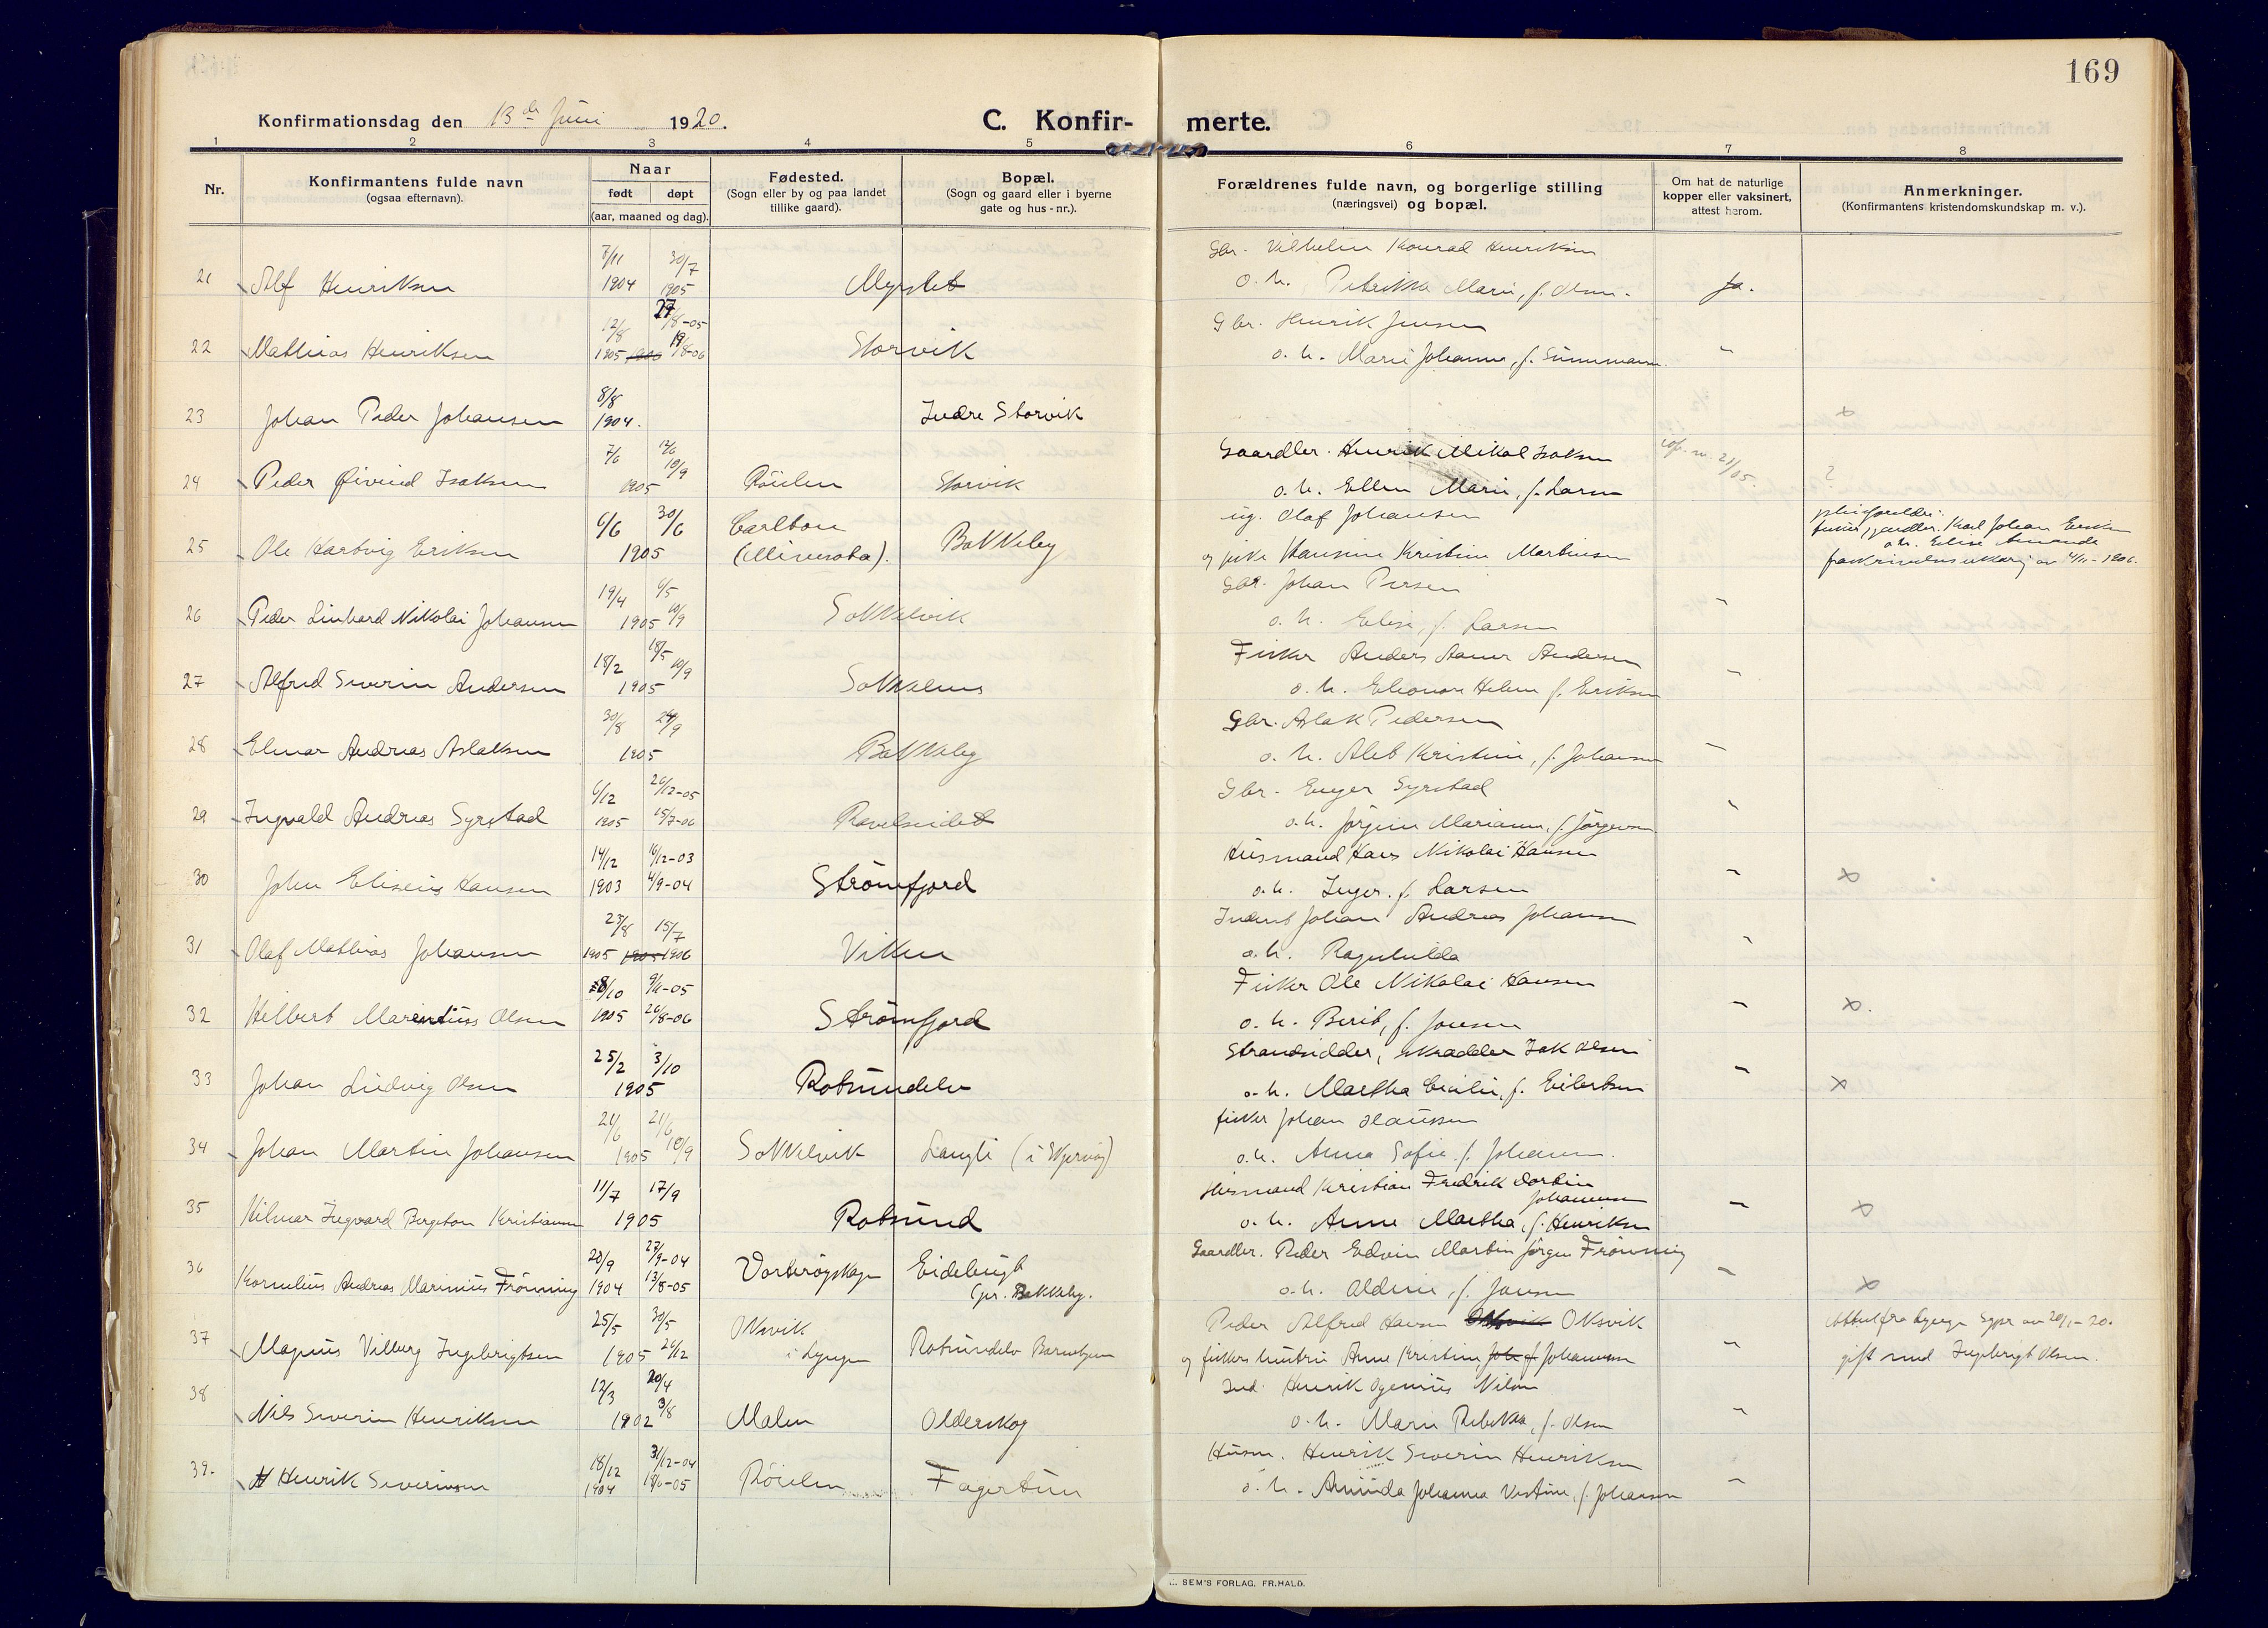 169
Konfirmationsdag den 13de Juni 1920.
C. Konfirmerte.
1 2 3 4 5 6 7 8
Nr.
Konfirmantens fulde navn
(ogsaa efternavn).
Naar
født døpt
(aar, maaned og dag).
Fødested.
(Sogn eller by og paa landet
tillike gaard).
Bopæl.
(Sogn og gaard eller i byerne
gate og hus-nr.).
Forældrenes fulde navn, og borgerlige stilling
(næringsvei) og bopæl.
Om hat de naturlige
kopper eller vaksinert,
attest herom.
Anmerkninger.
(Konfirmantens kristendomskundskap m. v.).
7/11 30/7 Gbr. Vilhelm Konrad Henriksen
21 Alf Henriksen 1904 1905 Myrslet o. h. Petrikka Marie, f. Olsen. Ja.
12/8 27/8-05 Gbr. Henrik Jensen
22 Mathias Henriksen 1905 19/8-06 Storvik o. h. Marie Johanna, f. "
8/8
23 Johan Peder Johansen 1904. Indre Storvik x
7/6 12/6 10/9 Gaardbr. Henrik Mikal Isaksen
24 Peder Øivind Isaksen 1905 Röielen Storvik o. h. Ellen Marie, f. Larsen 21/05. ?
6/6 30/6 Carlton ug. Olaf Johansen pleieforeldre:
25 Ole Hartvig Eriksen 1905 (Minnesota). Bakkeby og pike Hansine Kristine Martinsen fisker, gaardbr. Karl Johan Eriksen
o. h. Elise Amanda
4/11-1906.
19/4 6/5 Gbr. Johan Persen
26 Peder Linhard Nikolai Johansen 1905 10/9 Sokkelvik o. h. Elise, f. Larsen "
18/2 18/5 10/9 Fisker Anders Anders Andersen
27 Alfred Severin Andersen 1905 Sokkelnes o. h. Eleonore Helene f. Eriksen "
30/8 24/9 Gbr. Aslak Pedersen
28 Elmar Andreas Aslaksen 1905 Bakkeby o. h. Alet Kristine, f. Johansen "
6/12 26/12-05 Gbr. Enger Syrstad
29 Ingvald Andreas Syrstad 1905 15/7-06 Ravelseidet o. h. Jørgine Marianne, f. Jørgensen "
14/12 16/12-03 Husmand Hans Nikolai Hansen
30 John Eliseus Hansen 1903 4/9-04 Strömfjord o. h. Inger f. Larsen " x
23/8 15/7 Inderst Johan Andreas Johansen
31 Olaf Mathias Johansen 1905 1905 1906 Viken o. h. Ragnhilda "
8/10 9/11-05 Fisker Ole Nikolai Hansen
32 Hilbert Marentius Olsen 1905 26/8-06 Strömfjord o. h. Berit, f. Jonsen " x.
25/2 3/10 Strandsidder, skrædder Isak Olsen
33 Johan Ludvig Olsen 1905 Rotsundelv o. h. Martha Cecilie, f. Eilertsen " x
21/6 21/6 fisker Johan Hansen
34 Johan Martin Johansen 1905 10/9 Sokkelvik Langli (i Skjervøy) o. h. Anna Sofie f. Johansen.
11/7 17/9 Husmand Kristian Fredrik Dortin
Johannesen
35 Hilmar Ingvard Bergeton Kristiansen 1905 Rotsund o. h. Anne Martha, f. Henriksen " x
20/9 27/9-04 Gaardbr. Peder Edvin Martin Jörgen Frönning
36 Kornelius Andreas Marinius Frönning 1904 13/8-05 Vorterøyskagen Eidebugt
(pr. Bakkeby. o. h. Aldine, f. Jensen " x
25/5 30/5 Oksvik Peder Alfred Hansen Oksvik Oksvik Attest fra Lyngen Sgpr. av 20/1-20.
37 Magnus Vilberg Ingebrigtsen 1905 26/12 i Lyngen Rotsundelv Barnehjem og fiskers hustru Anne Kristine Joh f Johannessen " gift med Ingebrigt Olsen.
12/3 20/4 Ind. Henrik Ogenius Nilsen
38 Nils Severin Henriksen 1902 3/8 Malen Olderskog o. h. Marie Rebekka, f. Olsen "
18/12 31/12-04 Husm. Henrik Severin Henriksen
39. H Henrik Severinsen 1904 18/6-05 Röielen Fagertun o. h. Aminda Johanna Vestine, f. Johansen "
SEM'S FORLAG. FR. HALD.